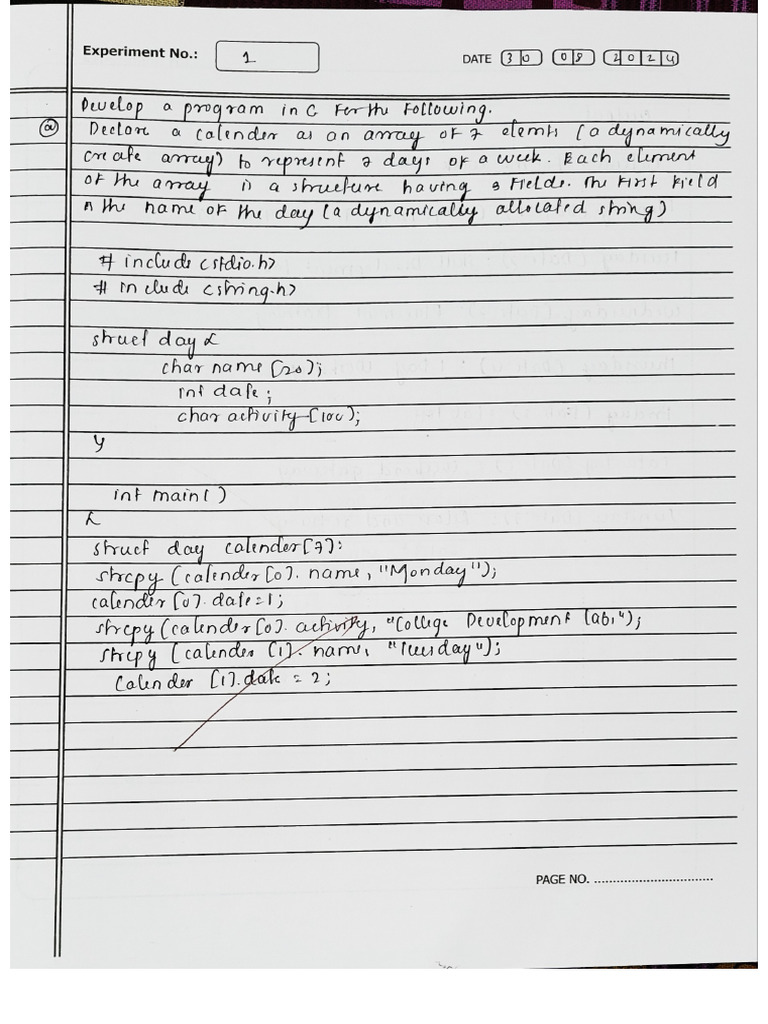 Experiment No.: 1 DATE 30 08 2024
Develop a program in C for the following.
(a) Declare a calender as an array of 7 elemts (a dynamically
create array) to represent 7 days of a week. Each element
of the array is a structure having 3 fields. The first field
is the name of the day (a dynamically allocated string)
# include <stdio.h>
# include <string.h>
struct day {
char name [20];
int date;
char activity [100);
}
int main()
{
struct day calender [7]:
strcpy (calender [0]. name, "Monday");
calender [0]. date=1;
strcpy (calender [0]. activity, "College Development labs");
strcpy (calender [1]. name, "Tuesday");
Calender [1].date = 2;
PAGE NO. ................................